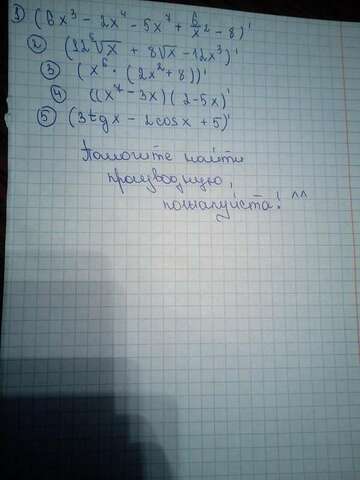 1) (6x³ - 2x⁴ - 5x⁷ + 6/x² - 8)'
2 (12⁵√x + 8√x - 12x³)'
3 (x⁶ · (2x² + 8))'
4 ((x⁷ - 3x)(2-5x)'
5) (3tgx - 2cosx + 5)'
Помогите найти
производную,
пожалуйста! ^^